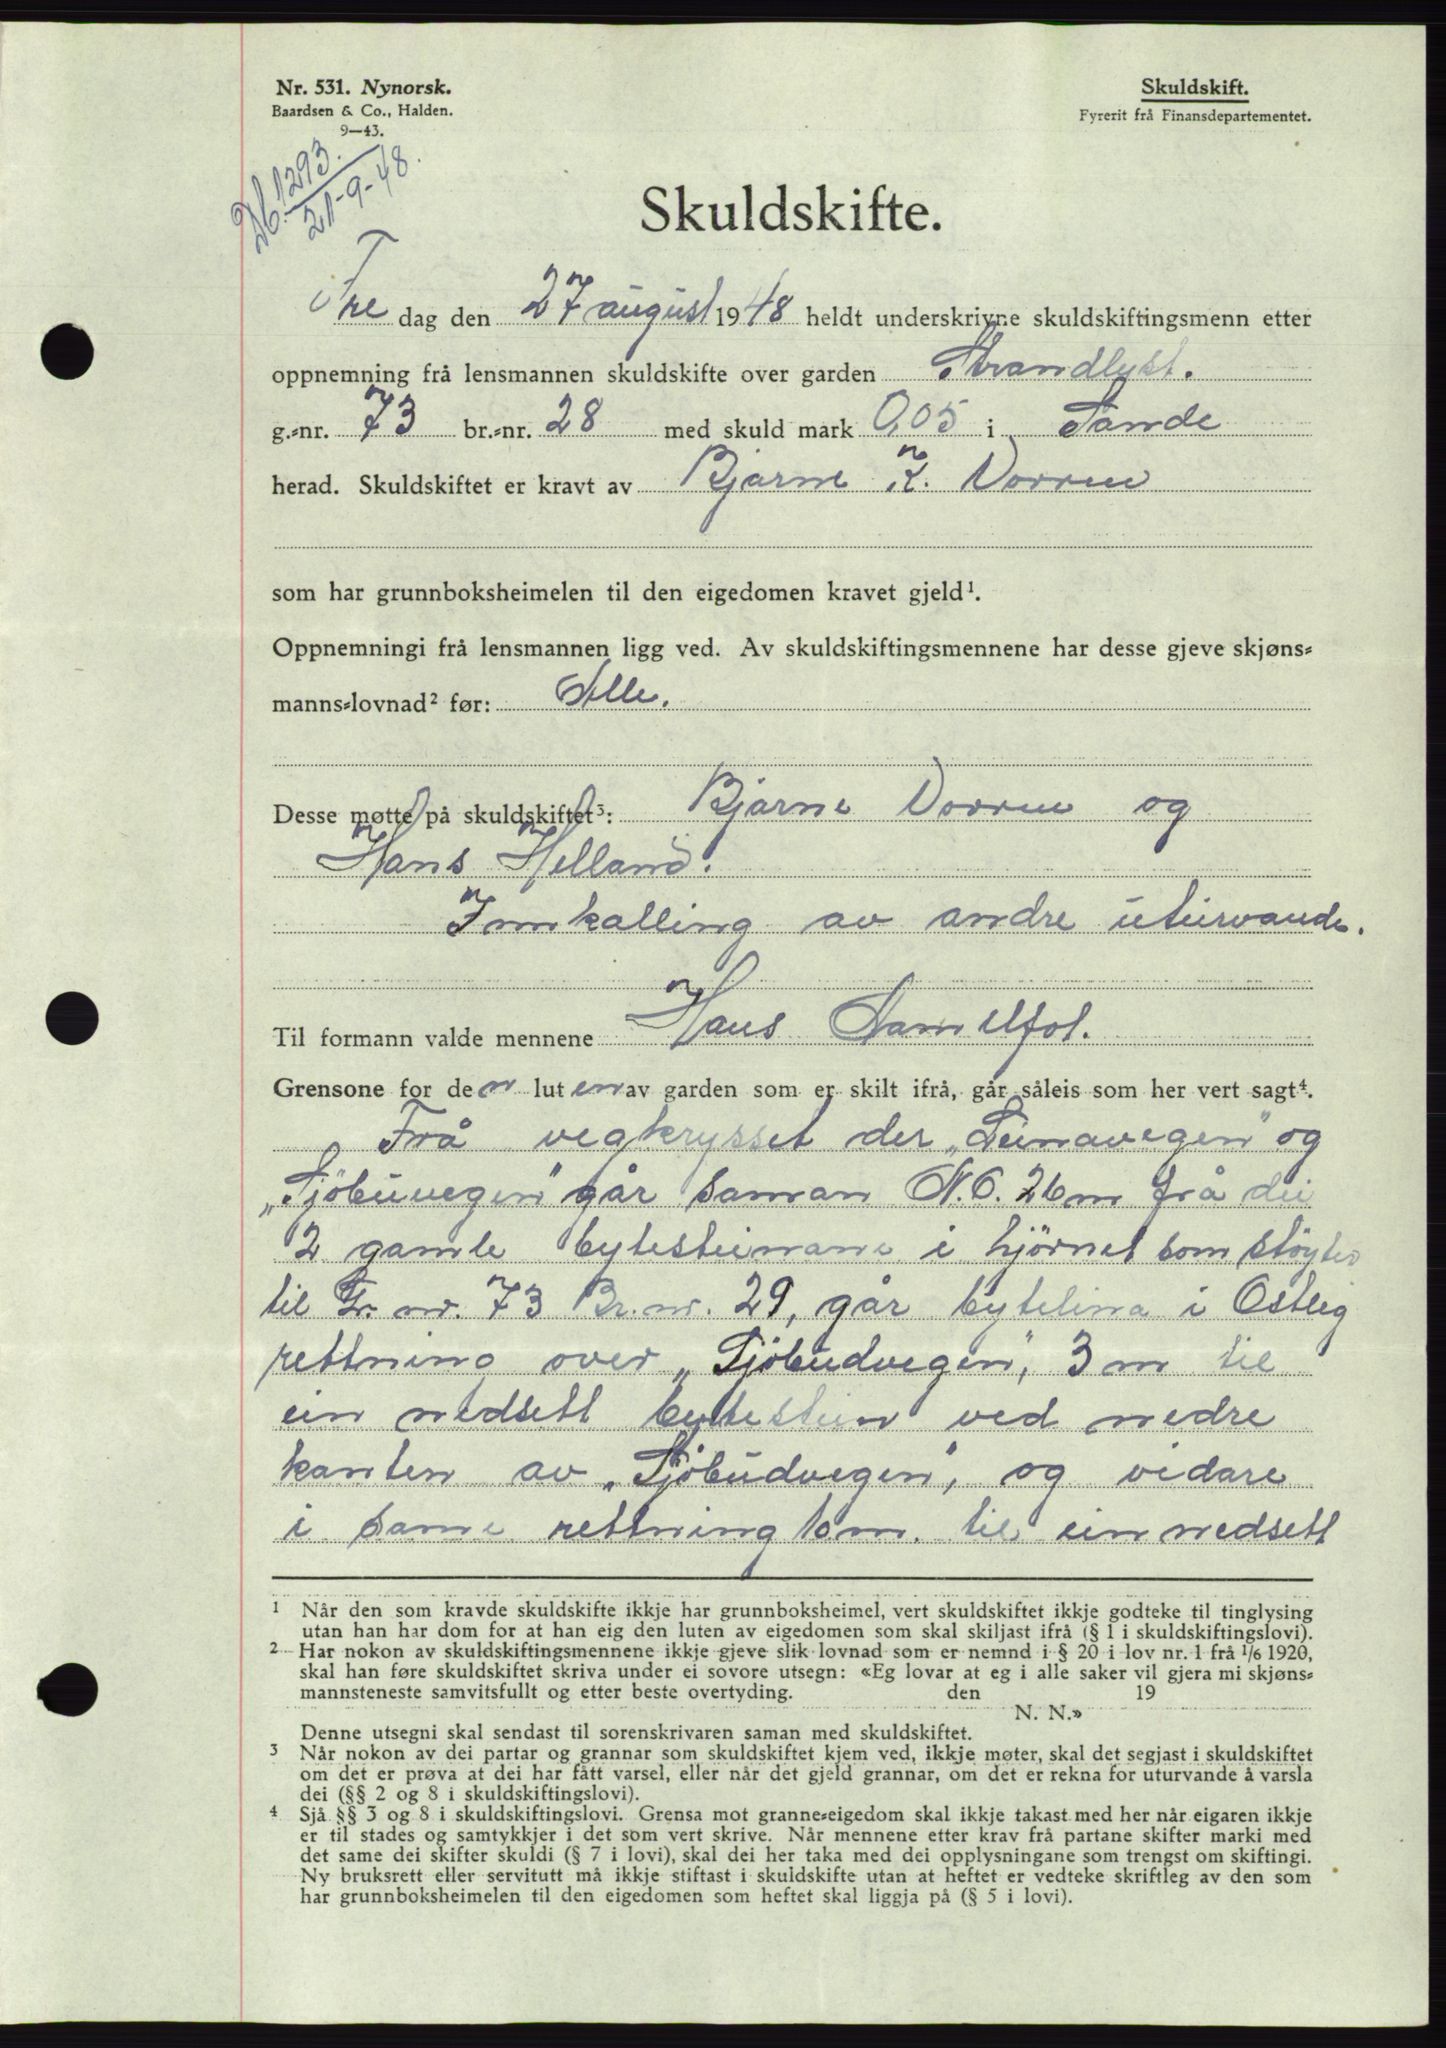 Nr. 531. Nynorsk.
Baardsen & Co., Halden.
9—43.
Skuldskift.
Fyrerit frå Finansdepartementet.
Db. 1293.
21-9-48.
Skuldskifte.
Fre dag den 27 august 1948 heldt underskrivne skuldskiftingsmenn etter
oppnemning frå lensmannen skuldskifte over garden Strandlyst.
g.-nr. 73 br.-nr. 28 med skuld mark 0,05 i Sande
herad. Skuldskiftet er kravt av Bjarne K. Vorren
som har grunnboksheimelen til den eigedomen kravet gjeld¹.
Oppnemningi frå lensmannen ligg ved. Av skuldskiftingsmennene har desse gjeve skjøns-
manns-lovnad² før: Alle.
Desse møtte på skuldskiftet³: Bjarne Vorren og
Hans Helland.
Innkalling av andre uturvande.
Til formann valde mennene Hans
Grensone for den luten av garden som er skilt ifrå, går såleis som her vert sagt⁴.
Frå vegkrysset der „Leinavegen" og
„Sjöbuvegen" går saman N.O. 26m frå dei
2 gamle bytesteinane i hjörnet som støyter
til Gr. nr. 73 Br. nr. 29, går bytelina i Ostleg
rettning over „Sjöbudvegen", 3 m til
ein nedsett bytestein ved nedre
kanten av „Sjöbudvegen", og vidare
i same rettning 10m. til ein nedsett
1 Når den som kravde skuldskifte ikkje har grunnboksheimel, vert skuldskiftet ikkje godteke til tinglysing
utan han har dom for at han eig den luten av eigedomen som skal skiljast ifrå (§ 1 i skuldskiftingslovi).
2 Har nokon av skuldskiftingsmennene ikkje gjeve slik lovnad som er nemnd i § 20 i lov nr. 1 frå 1/6 1920,
skal han føre skuldskiftet skriva under ei sovore utsegn: «Eg lovar at eg i alle saker vil gjera mi skjøns-
mannsteneste samvitsfullt og etter beste overtyding. den 19
N. N.»
Denne utsegni skal sendast til sorenskrivaren saman med skuldskiftet.
3 Når nokon av dei partar og grannar som skuldskiftet kjem ved, ikkje møter, skal det segjast i skuldskiftet
om det er prøva at dei har fått varsel, eller når det gjeld grannar, om det er rekna for uturvande å varsla
dei (§§ 2 og 8 i skuldskiftingslovi).
4 Sjå §§ 3 og 8 i skuldskiftingslovi. Grensa mot granne-eigedom skal ikkje takast med her når eigaren ikkje
er til stades og samtykkjer i det som vert skrive. Når mennene etter krav frå partane skifter marki med
det same dei skifter skuldi (§ 7 i lovi), skal dei her taka med dei opplysningane som trengst om skiftingi.
Ny bruksrett eller servitutt må ikkje stiftast i skuldskifte utan at heftet er vedteke skriftleg av den som
har grunnboksheimelen til den eigedomen som heftet skal liggja på (§ 5 i lovi).